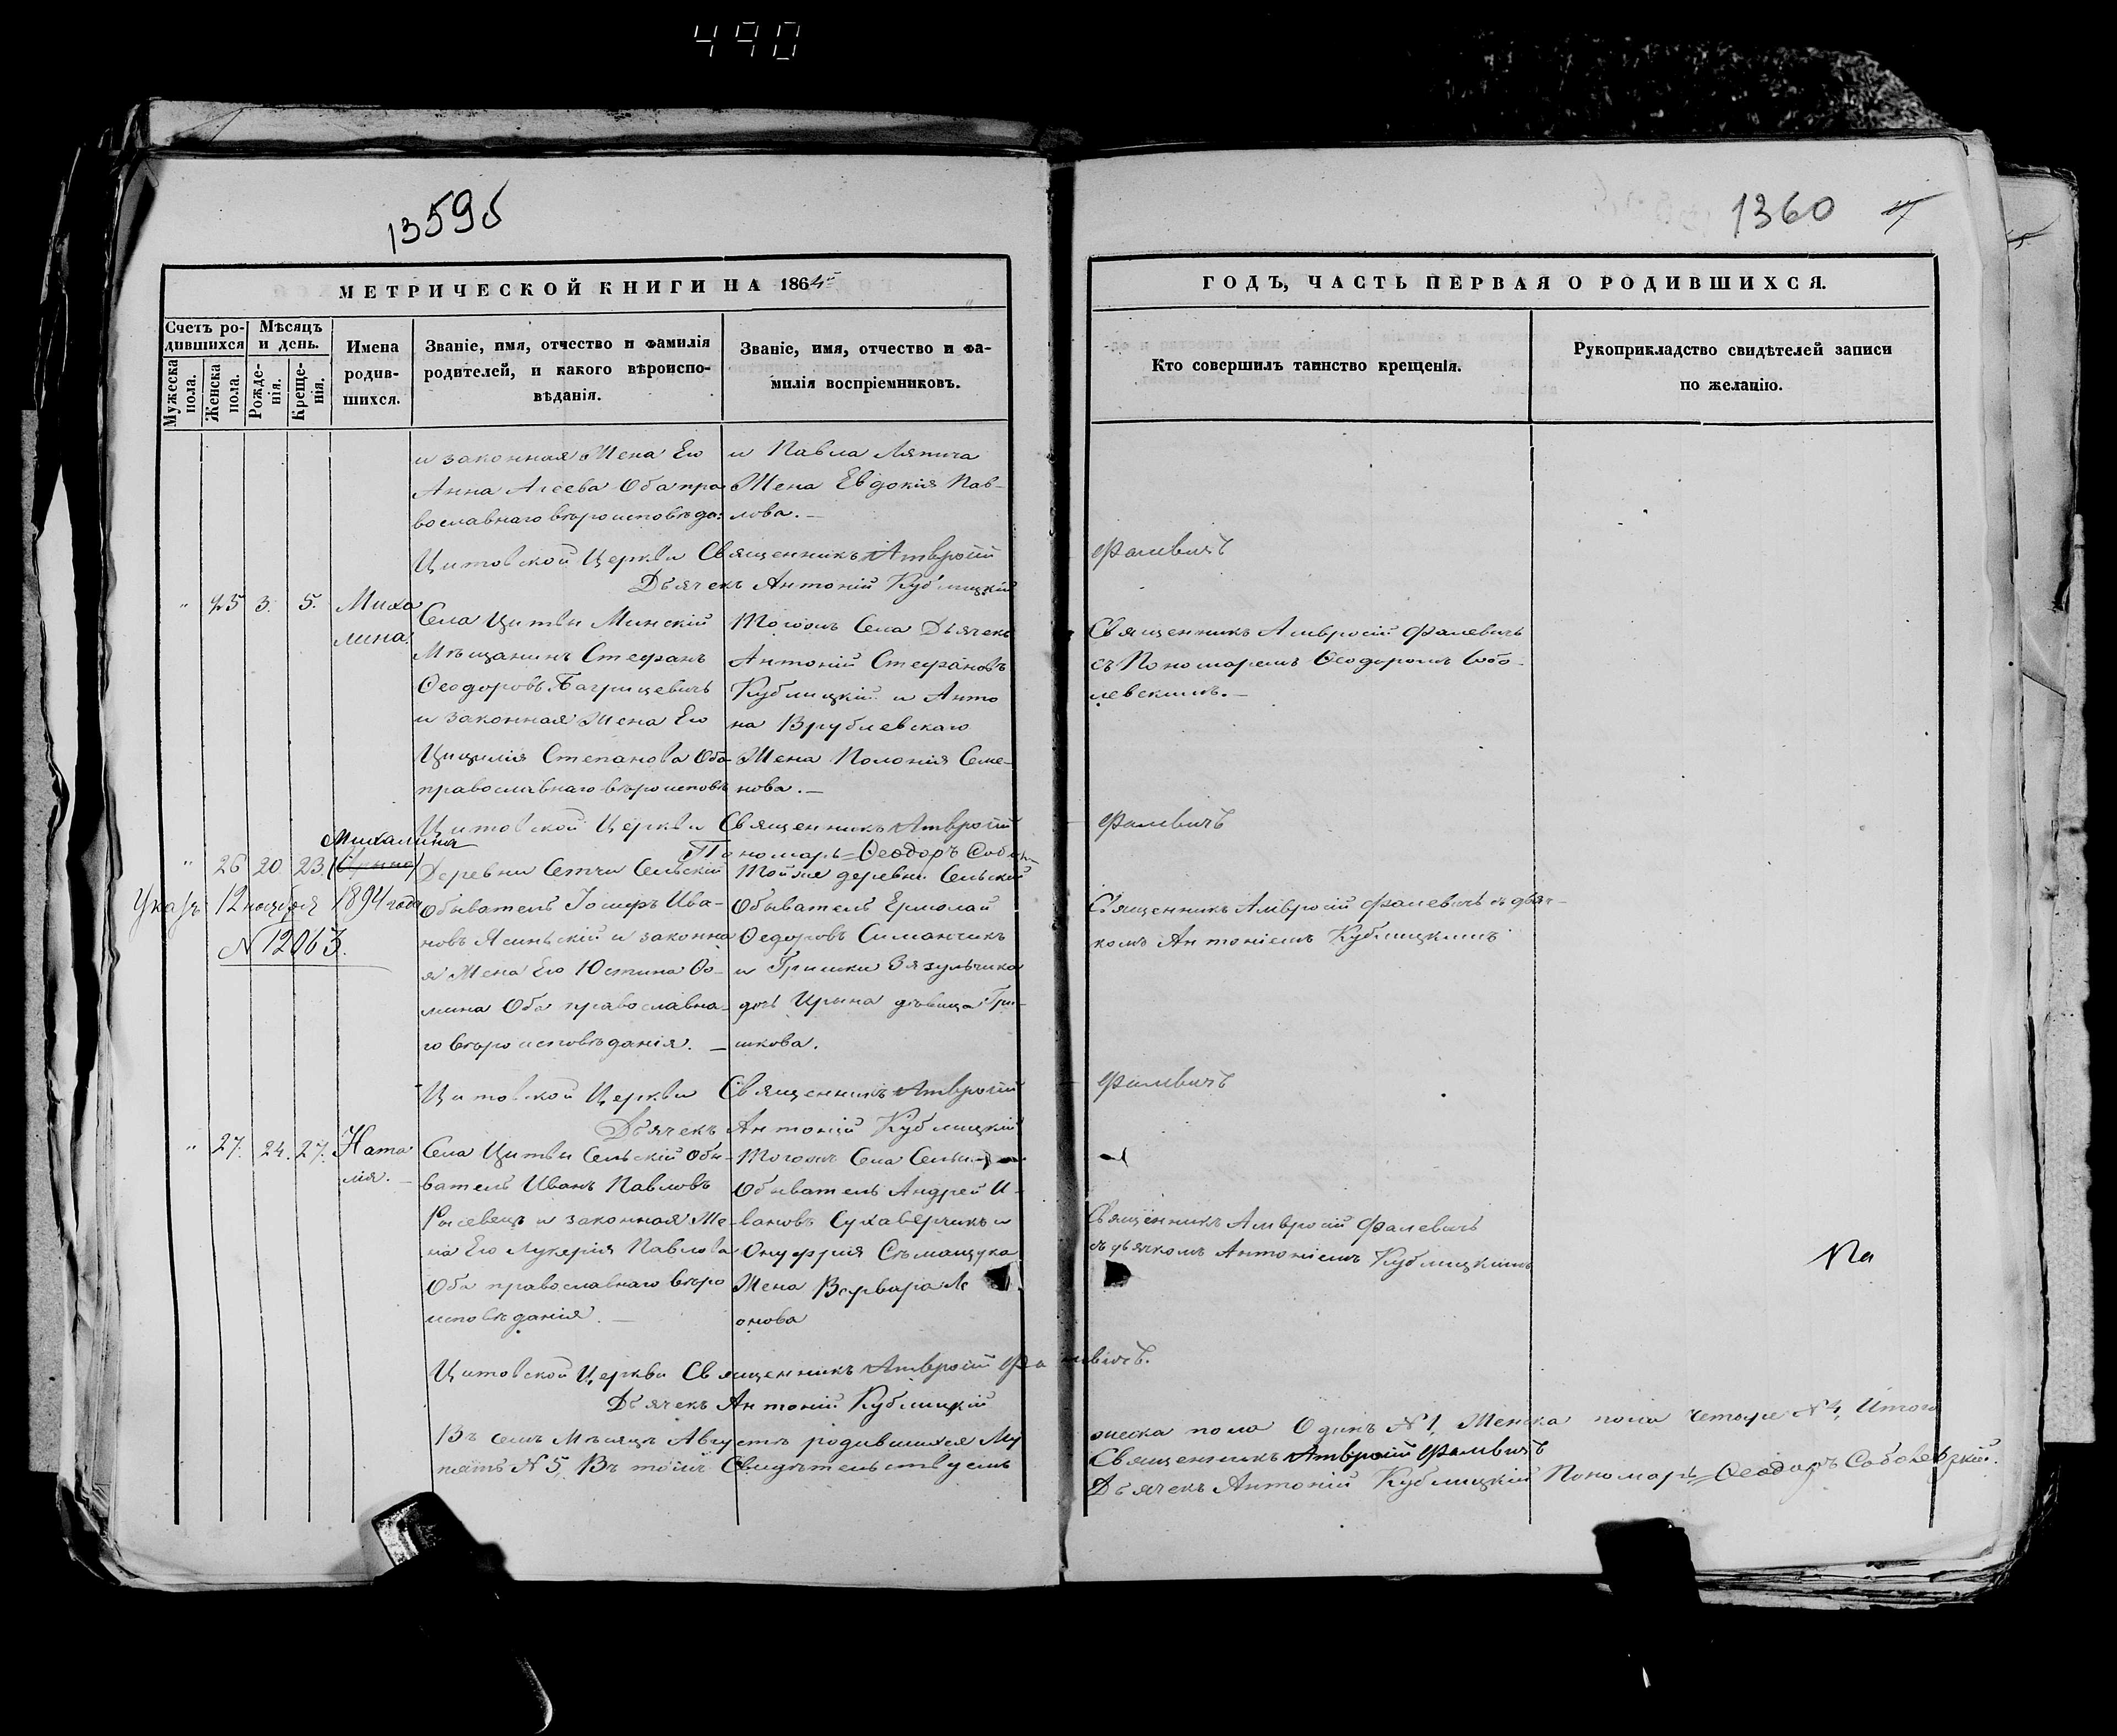 490
1359 б
1360
МЕТРИЧЕСКОЙ КНИГИ НА 1864й
ГОДЪ, ЧАСТЬ ПЕРВАЯ О РОДИВШИХСЯ.
Счетъ ро-
дившихся
Мужеска пола.
Женска пола.
Мѣсяцъ
и день.
Рожде-
нія.
Креще-
нія.
Имена
родив-
шихся.
Званіе, имя, отчество и фамилія
родителей, и какого вѣроиспо-
вѣданія.
Званіе, имя, отчество и фа-
милія воспріемниковъ.
Кто совершилъ таинство крещенія.
Рукоприкладство свидѣтелей записи
по желанію.
и законная Жена Его
Анна Агеева Оба пра
вославнаго вѣроисповѣда:
и Павла Ляпича
Жена Евдокія Пав-
лова. —
Цитовской Церкви Священникъ Амвросій Фалевичъ
Дьячекъ Антоній Кублицкій
" 25 3. 5. Миха
лина
Села Цитвы Минскій
Мѣщанинъ Стефанъ
Ѳеодоровъ Багрицевичъ
и законная Жена Его
Цицилія Степанова Оба
православнаго вѣроисповѣ
Тогожъ Села Дьячекъ
Антоній Стефановъ
Кублицкій и Анто
на Врублевскаго
Жена Полонія Семе-
нова. —
Священникъ Амвросій Фалевичъ
съ Пономаремъ Ѳеодоромъ Собо-
левскимъ. —
Цитовской Церкви Священникъ Амвросій Фалевичъ
Пономарь Ѳеодоръ Собол
Михалина
" 26 20 23. (Ирина)
Указъ 12 ноября 1894 года
N 12063.
Деревни Сетчи Сельскій
Обыватель Іосифъ Ива-
новъ Ясинскій и законна
я Жена Его Юстина Ѳо-
мина Оба православна-
го вѣроисповѣданія. —
Тойже деревни Сельскій
Обыватель Ермолай
Федоровъ Симанчикъ
и Гришки Зязульчика
дочь Ирина дѣвица Гри-
шкова.
Священникъ Амвросій Фалевичъ съ дьяч-
комъ Антоніемъ Кублицкимъ
Цитовской Церкви Священникъ Амвросій Фалевичъ
Дьячекъ Антоній Кублицкій
" 27. 24. 27. Ната
лія. —
Села Цитвы Сельскій Обы-
ватель Иванъ Павловъ
и законная Же-
на Его Лукерія Павлова
Оба православнаго вѣро
исповѣданія. —
Тогожъ Села
Обыватель Андрей И-
вановъ Сухаверчикъ и
Онуфрія
Жена Варвара Ле
онова
Священникъ Амвросій Фалевичъ
съ дьячкомъ Антоніемъ Кублицкимъ
Цитовской Церкви Священникъ Амвросій Фалевичъ.
Дьячекъ Антоній Кублицкій
Въ семъ Мѣсяцѣ Августѣ родившихся Му
жеска пола Одинъ N 1, Женска пола четыре N 4, Итого
пять N 5, Въ томъ Свидѣтельствуемъ
Священникъ Амвросій Фалевичъ
Дьячекъ Антоній Кублицкій Пономарь Ѳеодоръ Соболевскій.